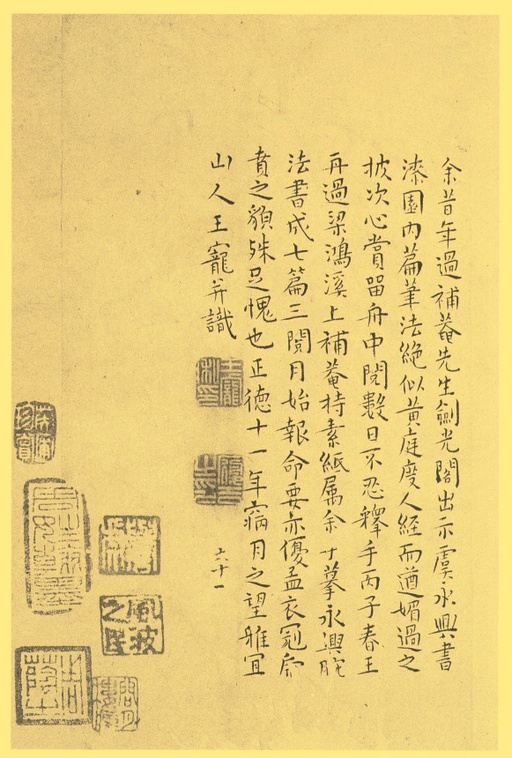 余昔年過補菴先生劍光閣出示虞永興書
漆園内篇筆法絶似黃庭度人經而遒媚過之
披次心賞留舟中閱數日不忍釋手丙子春王
再過梁鴻溪上補菴持素紙属余摹永興腕
法書成七篇三閱月始報命要亦優孟衣冠虎
賁之貌殊足愧也正德十一年病月之望雅宜
山人王寵并識
王寵私印
六十一
風波之民